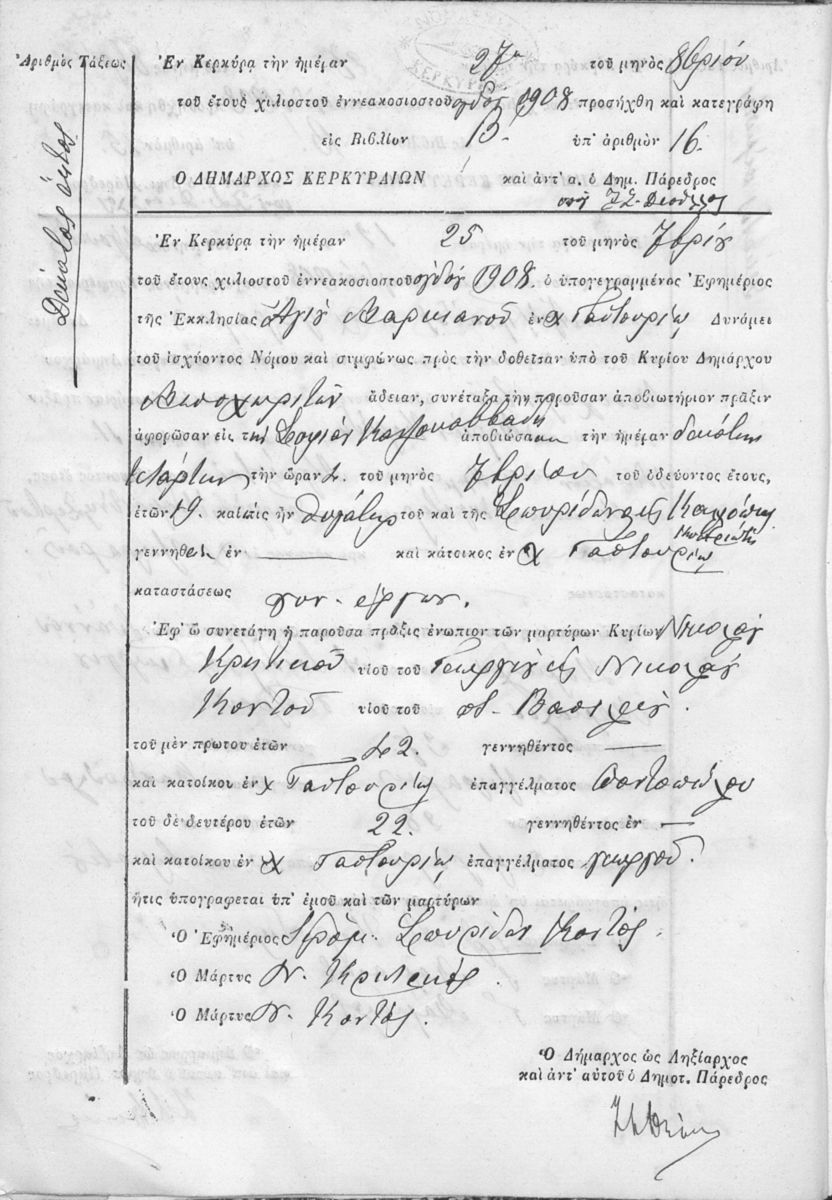 Ἀριθμὸς Τάξεως
Δέκατος ἕκτος
Ἐν Κερκύρᾳ τὴν ἡμέραν 27ην τοῦ μηνὸς 8βρίου
τοῦ ἔτους χιλιοστοῦ ἐννεακοσιοστοῦ ὀγδόου 1908 προσήχθη καὶ κατεγράφη
εἰς Βιβλίον Β. ὑπ' ἀριθμὸν 16.
Ο ΔΗΜΑΡΧΟΣ ΚΕΡΚΥΡΑΙΩΝ καὶ ἀντ' α. ὁ Δημ. Πάρεδρος
Ἐν Κερκύρᾳ τὴν ἡμέραν 25 τοῦ μηνὸς 7βρίου
τοῦ ἔτους χιλιοστοῦ ἐννεακοσιοστοῦ ὀγδόου 1908. ὁ ὑπογεγραμμένος Ἐφημέριος
τῆς Ἐκκλησίας Ἁγίου Μαρκιανοῦ ἐν χ Γαστουρίῳ Δυνάμει
τοῦ ἰσχύοντος Νόμου καὶ συμφώνως πρὸς τὴν δοθεῖσαν ὑπὸ τοῦ Κυρίου Δημάρχου
Μεσοχωριτῶν ἄδειαν, συνέταξα τὴν παροῦσαν ἀποβιωτήριον πρᾶξιν
ἀφορῶσαν εἰς τὴν Σοφίαν ἀποβιώσασαν τὴν ἡμέραν δεκάτην
τετάρτην τὴν ὥραν τοῦ μηνὸς 7βρίου τοῦ ὁδεύοντος ἔτους,
ἐτῶν 19. καὶ ἥτις ἦν θυγάτηρ τοῦ καὶ τῆς Σπυρίδωνος
γεννηθεῖσα ἐν — καὶ κάτοικος ἐν χ Γαστουρίῳ
καταστάσεως
Ἐφ' ᾧ συνετάγη ἡ παροῦσα πρᾶξις ἐνώπιον τῶν μαρτύρων Κυρίων Νικολάου
Κρητικοῦ υἱοῦ τοῦ Γεωργίου καὶ Νικολάου
Κοντοῦ υἱοῦ τοῦ Βασιλείου.
τοῦ μὲν πρώτου ἐτῶν 42. γεννηθέντος —
καὶ κατοίκου ἐν χ Γαστουρίῳ ἐπαγγέλματος παντοπώλου
τοῦ δὲ δευτέρου ἐτῶν 22. γεννηθέντος ἐν —
καὶ κατοίκου ἐν χ Γαστουρίῳ ἐπαγγέλματος γεωργοῦ.
ἥτις ὑπογράφεται ὑπ' ἐμοῦ καὶ τῶν μαρτύρων
Ὁ Ἐφημέριος Σπυρίδων Κοντός.
Ὁ Μάρτυς Ν. Κρητικός.
Ὁ Μάρτυς Ν. Κοντός.
Ὁ Δήμαρχος ὡς Ληξίαρχος
καὶ ἀντ' αὐτοῦ ὁ Δημοτ. Πάρεδρος